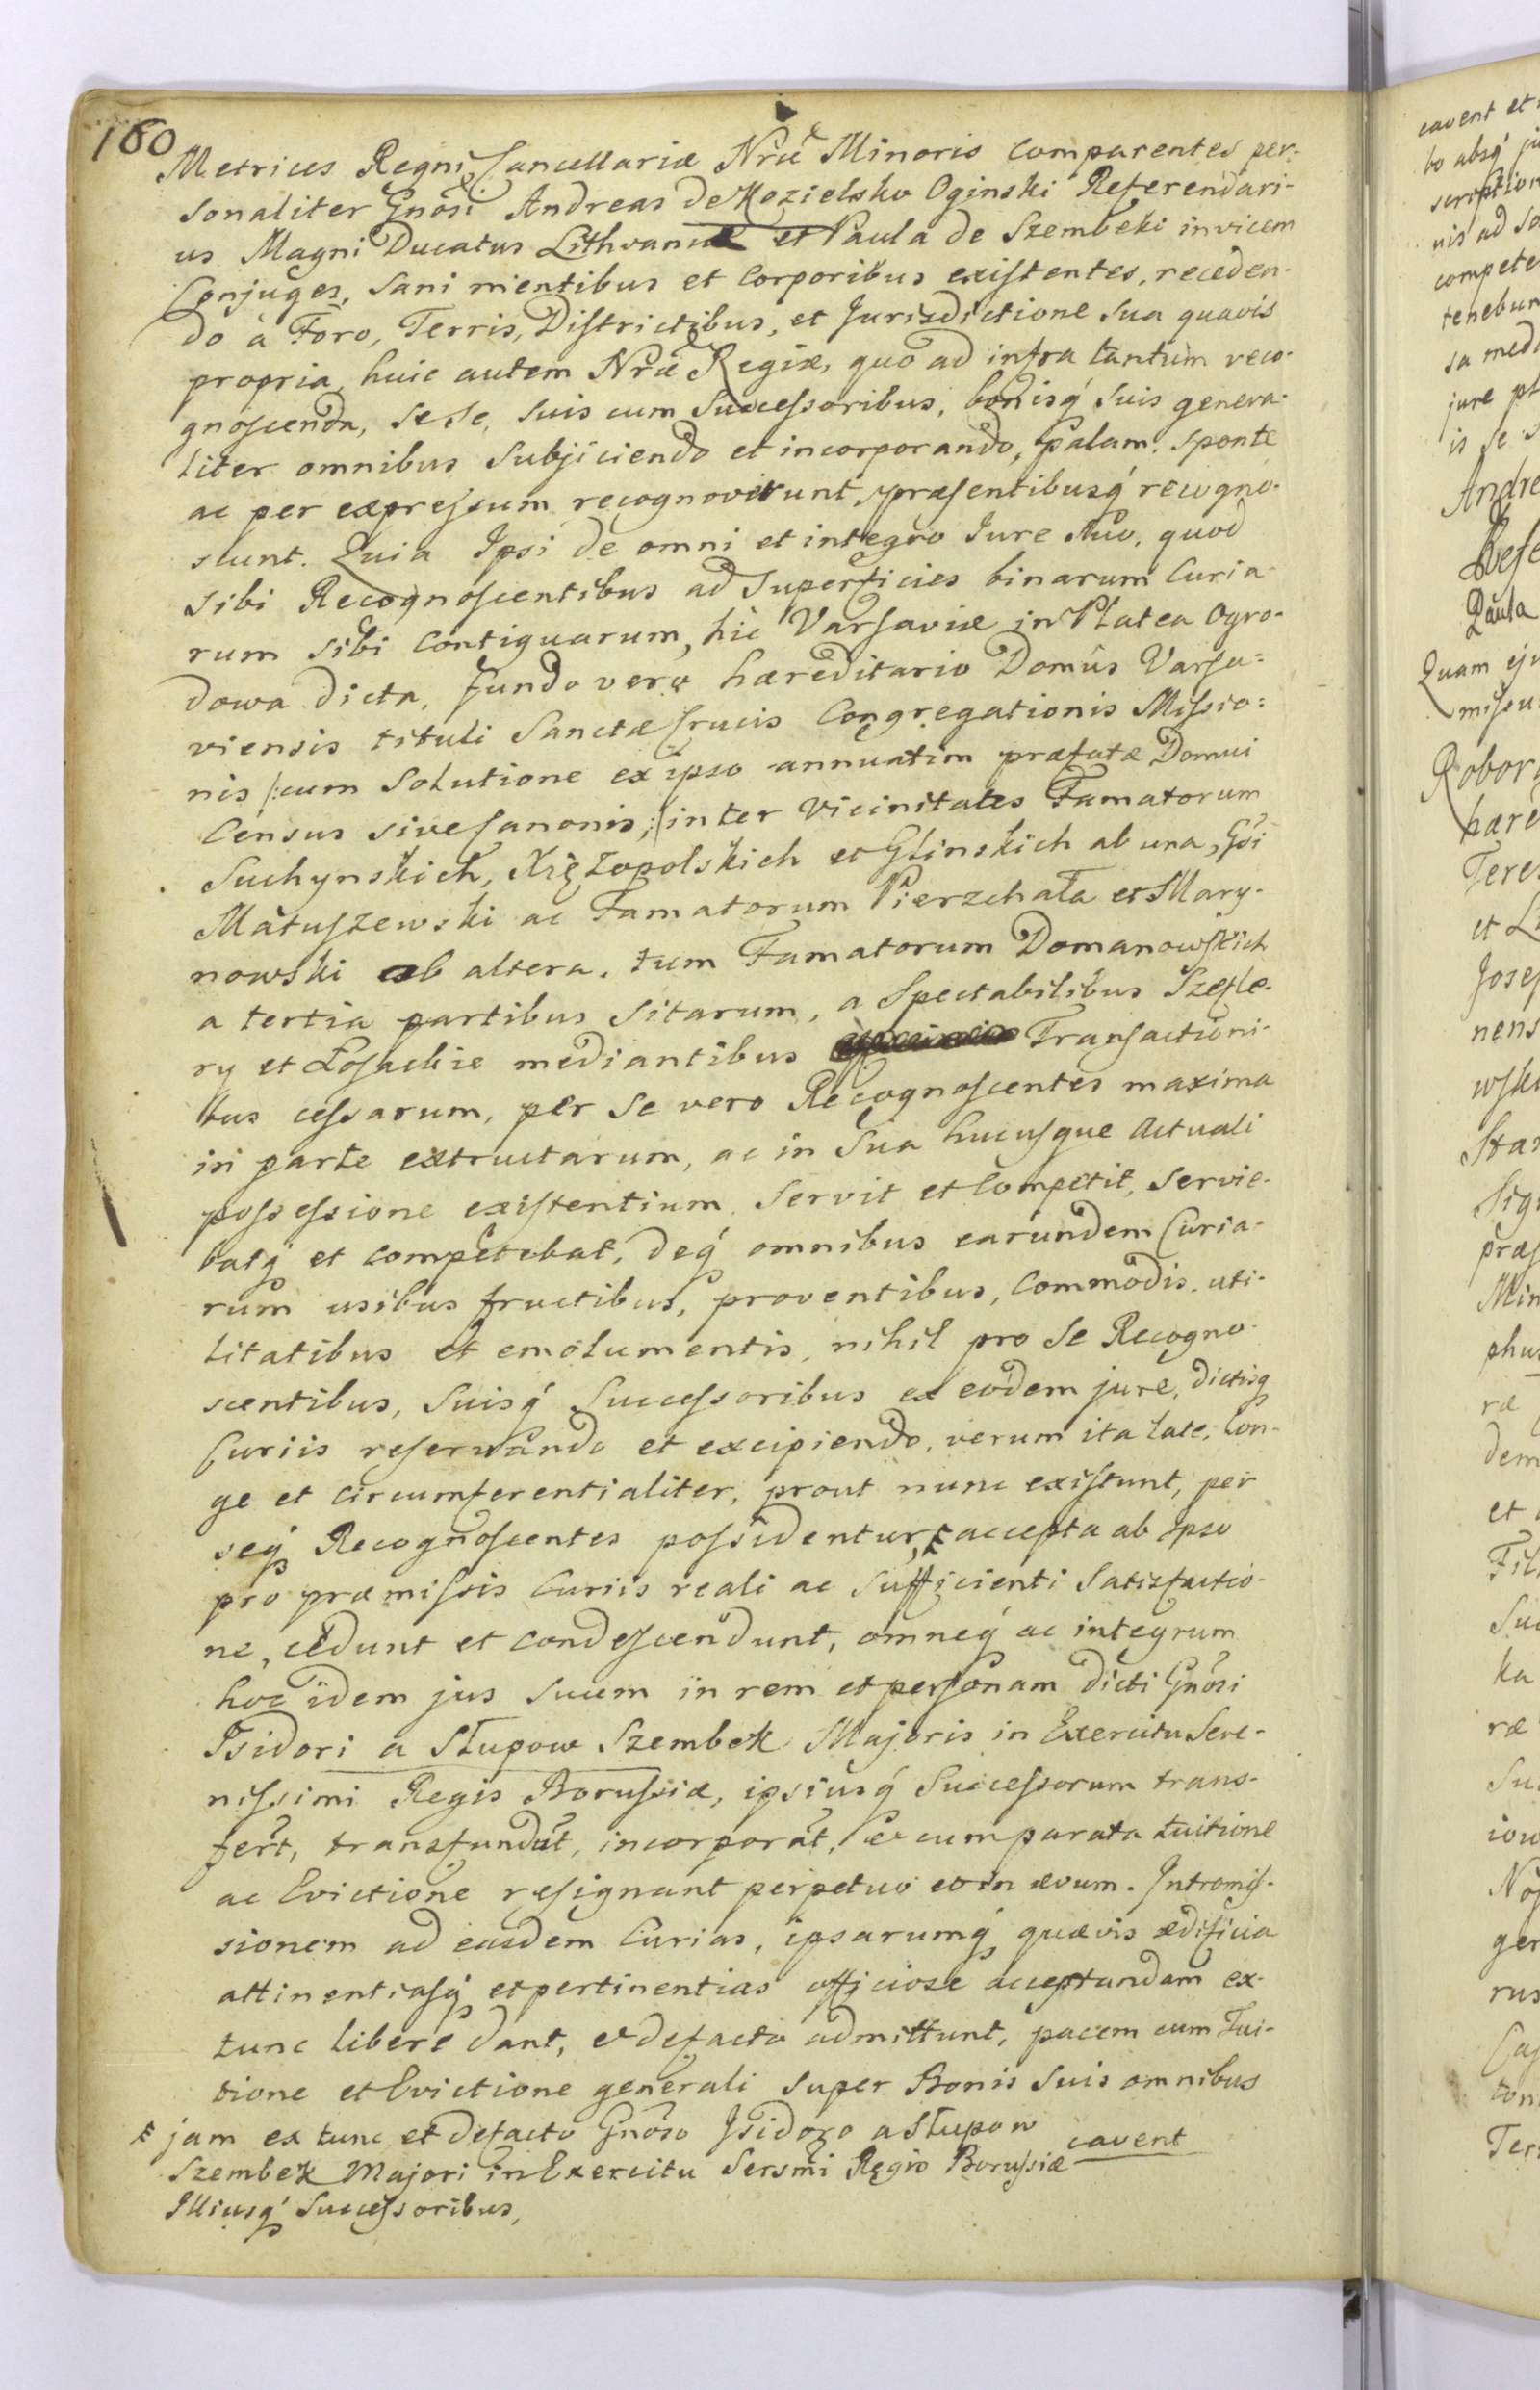 160
Metrices Regni Cancellariæ Nræ Minoris comparentes per:
sonaliter Gnosi Andreas de Kozielsko Oginski Referendari-
us Magni Ducatus Lithvaniæ et Paula de Szembeki invicem
Conjuges, sani mentibus et corporibus existentes, receden-
do à Foro, Terris, Districtibus, et Jurisdictione sua quavis
propria, huic autem Nræ Regiæ, quo ad infra tantum reco-
gnoscenda, se se, suis cum Successoribus, bonisq́ suis genera-
liter omnibus subjiciendo et incorporando, palam, sponte
ac per expressum recognoverunt, præsentibusq́ recogno-
scunt. Quia Ipsi de omni et integro Jure suo, quod
sibi Recognoscentibus ad superficies binarum Curia-
rum sibi contiguarum, hic Varsaviæ in Platea Ogro-
dowa dicta, fundo vero hæreditario Domûs Varsa=
viensis tituli Sanctæ Crucis Congregationis Missio=
nis /: cum solutione ex ipso annuatim præfatæ Domui
Census sive Canonis :/ inter vicinitates Famatorum
Suchynskich, Xiężopolskich et Glinskich ab una, Gsi
Matuszewski ac Famatorum Pierzchała et Mary-
nowski ab altera, tum Famatorum Domanowskich
a tertia partibus sitarum, a Spectabilibus Szefle-
ry et Łosackie mediantibus Transactioni-
bus cessarum, per se vero Recognoscentes maxima
in parte extructarum, ac in sua hucusque actuali
possessione existentium servit et competit, servie-
batq́ et competebat, deq́ omnibus earundem Curia-
rum usibus fructibus, proventibus, commodis, uti-
litatibus et emolumentis, nihil pro se Recogno-
scentibus, suisq́ Successoribus ex eodem jure, dictisq
Curiis reservando et excipiendo, verum ita late, lon-
ge et circumferentialiter, prout nunc existunt, per
seq́ Recognoscentes possidentur, accepta ab ipso
pro præmissis Curiis reali ac sufficienti satisfactio-
ne, cedunt et condescendunt, omneq́ ac integrum
hoc idem jus suum in rem et personam dicti Gnosi
Isidori a Słupow Szembek Majoris in Exercitu Sere-
nissimi Regis Borussiæ, ipsiusq́ Successorum trans-
fert, transfundat, incorporat, et cum parata tuitione
ac Evictione resignant perpetuo et in ævum. Intromis-
sionem ad easdem Curias, ipsarumq́ quævis ædificia
attinentiasq́ et pertinentias officiose acceptandam ex-
tunc libere dant, et de facto admittunt, pacem cum Tui-
tione et Evictione generali super Bonis suis omnibus
cavent
jam ex tunc et defacto Gnoso Isidoro a Słupow
Szembek Majori in Exercitu Sersmi Regis Borussiæ
Illiusq́ Successoribus,
cavent et
bo absq́ ju
scription
nis ad So
compete
tenebun
sa med
jure pt
is se s
Andre
Refe
Paula
Quam eju
missu
Robor
hære
Teres
et L
Josep
nens
wski
Stan
Sig
præs
Min
phus
ræ
dem
et
Fil
Suc
ka
ræ
Su
iow
Nos
ger
rus
Cas
ton
Ter